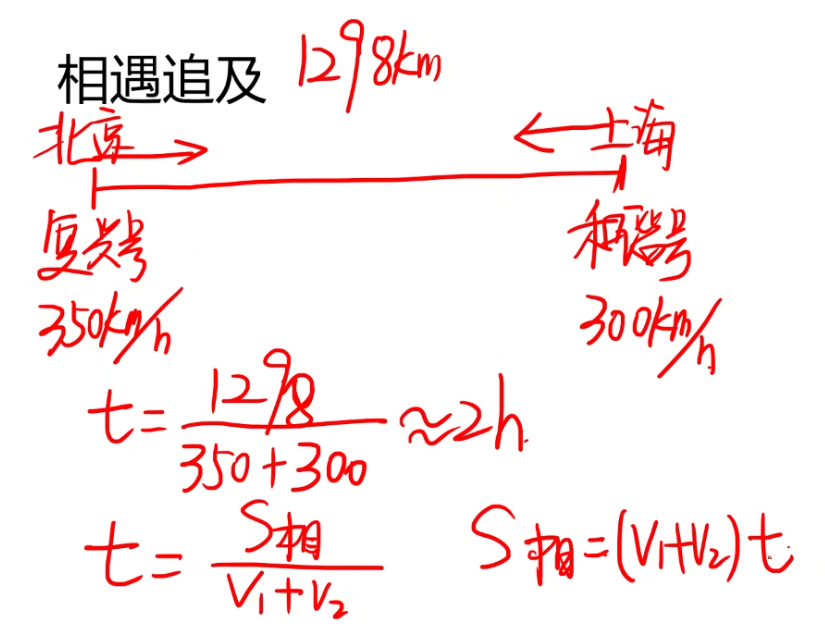 相遇追及 1298km
北京 上海
复兴号 和谐号
350km/h 300km/h
t=1298/(350+300)≈2h
t=S相/(V₁+V₂) S相=(V₁+V₂)t